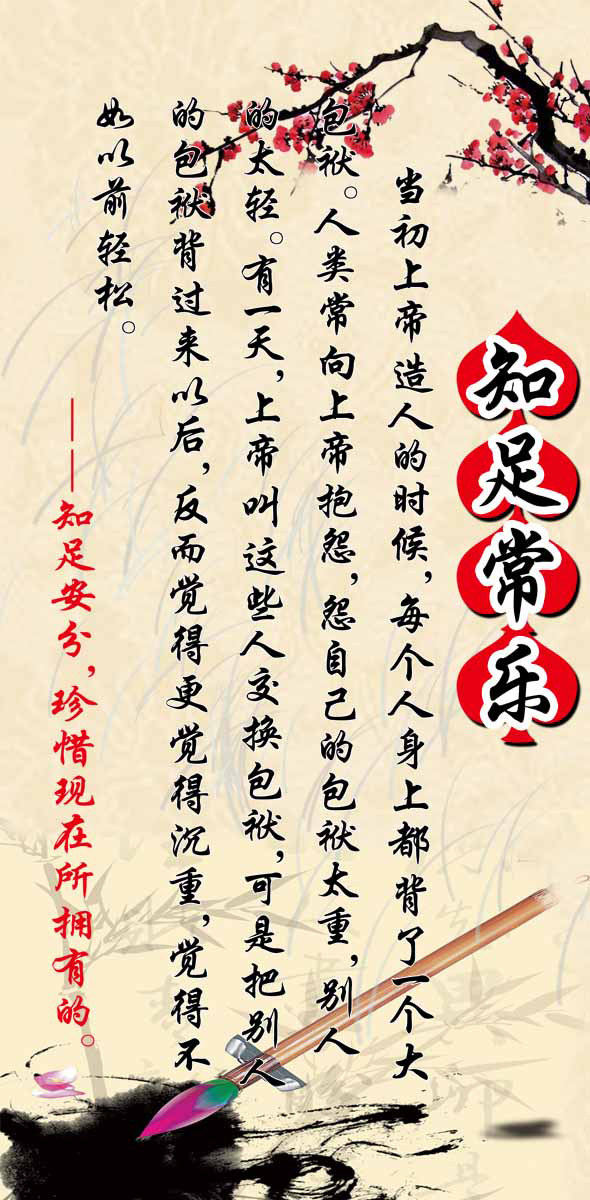 知足常乐
当初上帝造人的时候，每个人身上都背了一个大
包袱。人类常向上帝抱怨，怨自己的包袱太重，别人
的太轻。有一天，上帝叫这些人交换包袱，可是把别人
的包袱背过来以后，反而觉得更觉得沉重，觉得不
如以前轻松。
——知足安分，珍惜现在所拥有的。